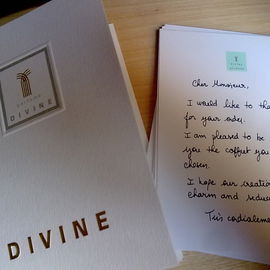 DIVINE
DIVINE
DIVINE
Cher Monsieur,
I would like to tha
for your order.
I am pleased to be
you the coffret you
chosen.
I hope our creation
charm and seduce
Très cordialeme